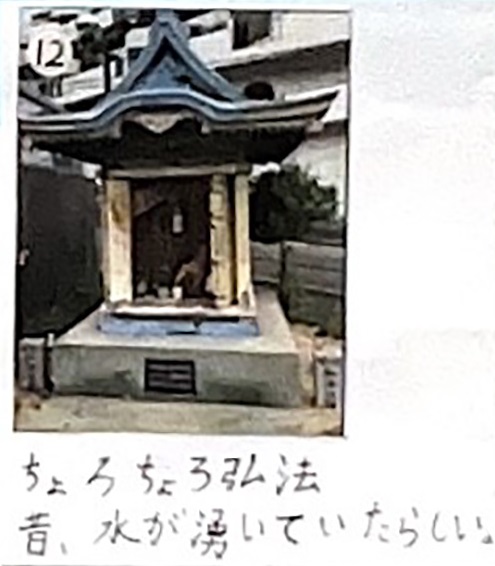 12
ちょろちょろ弘法
昔、水が湧いていたらしい。